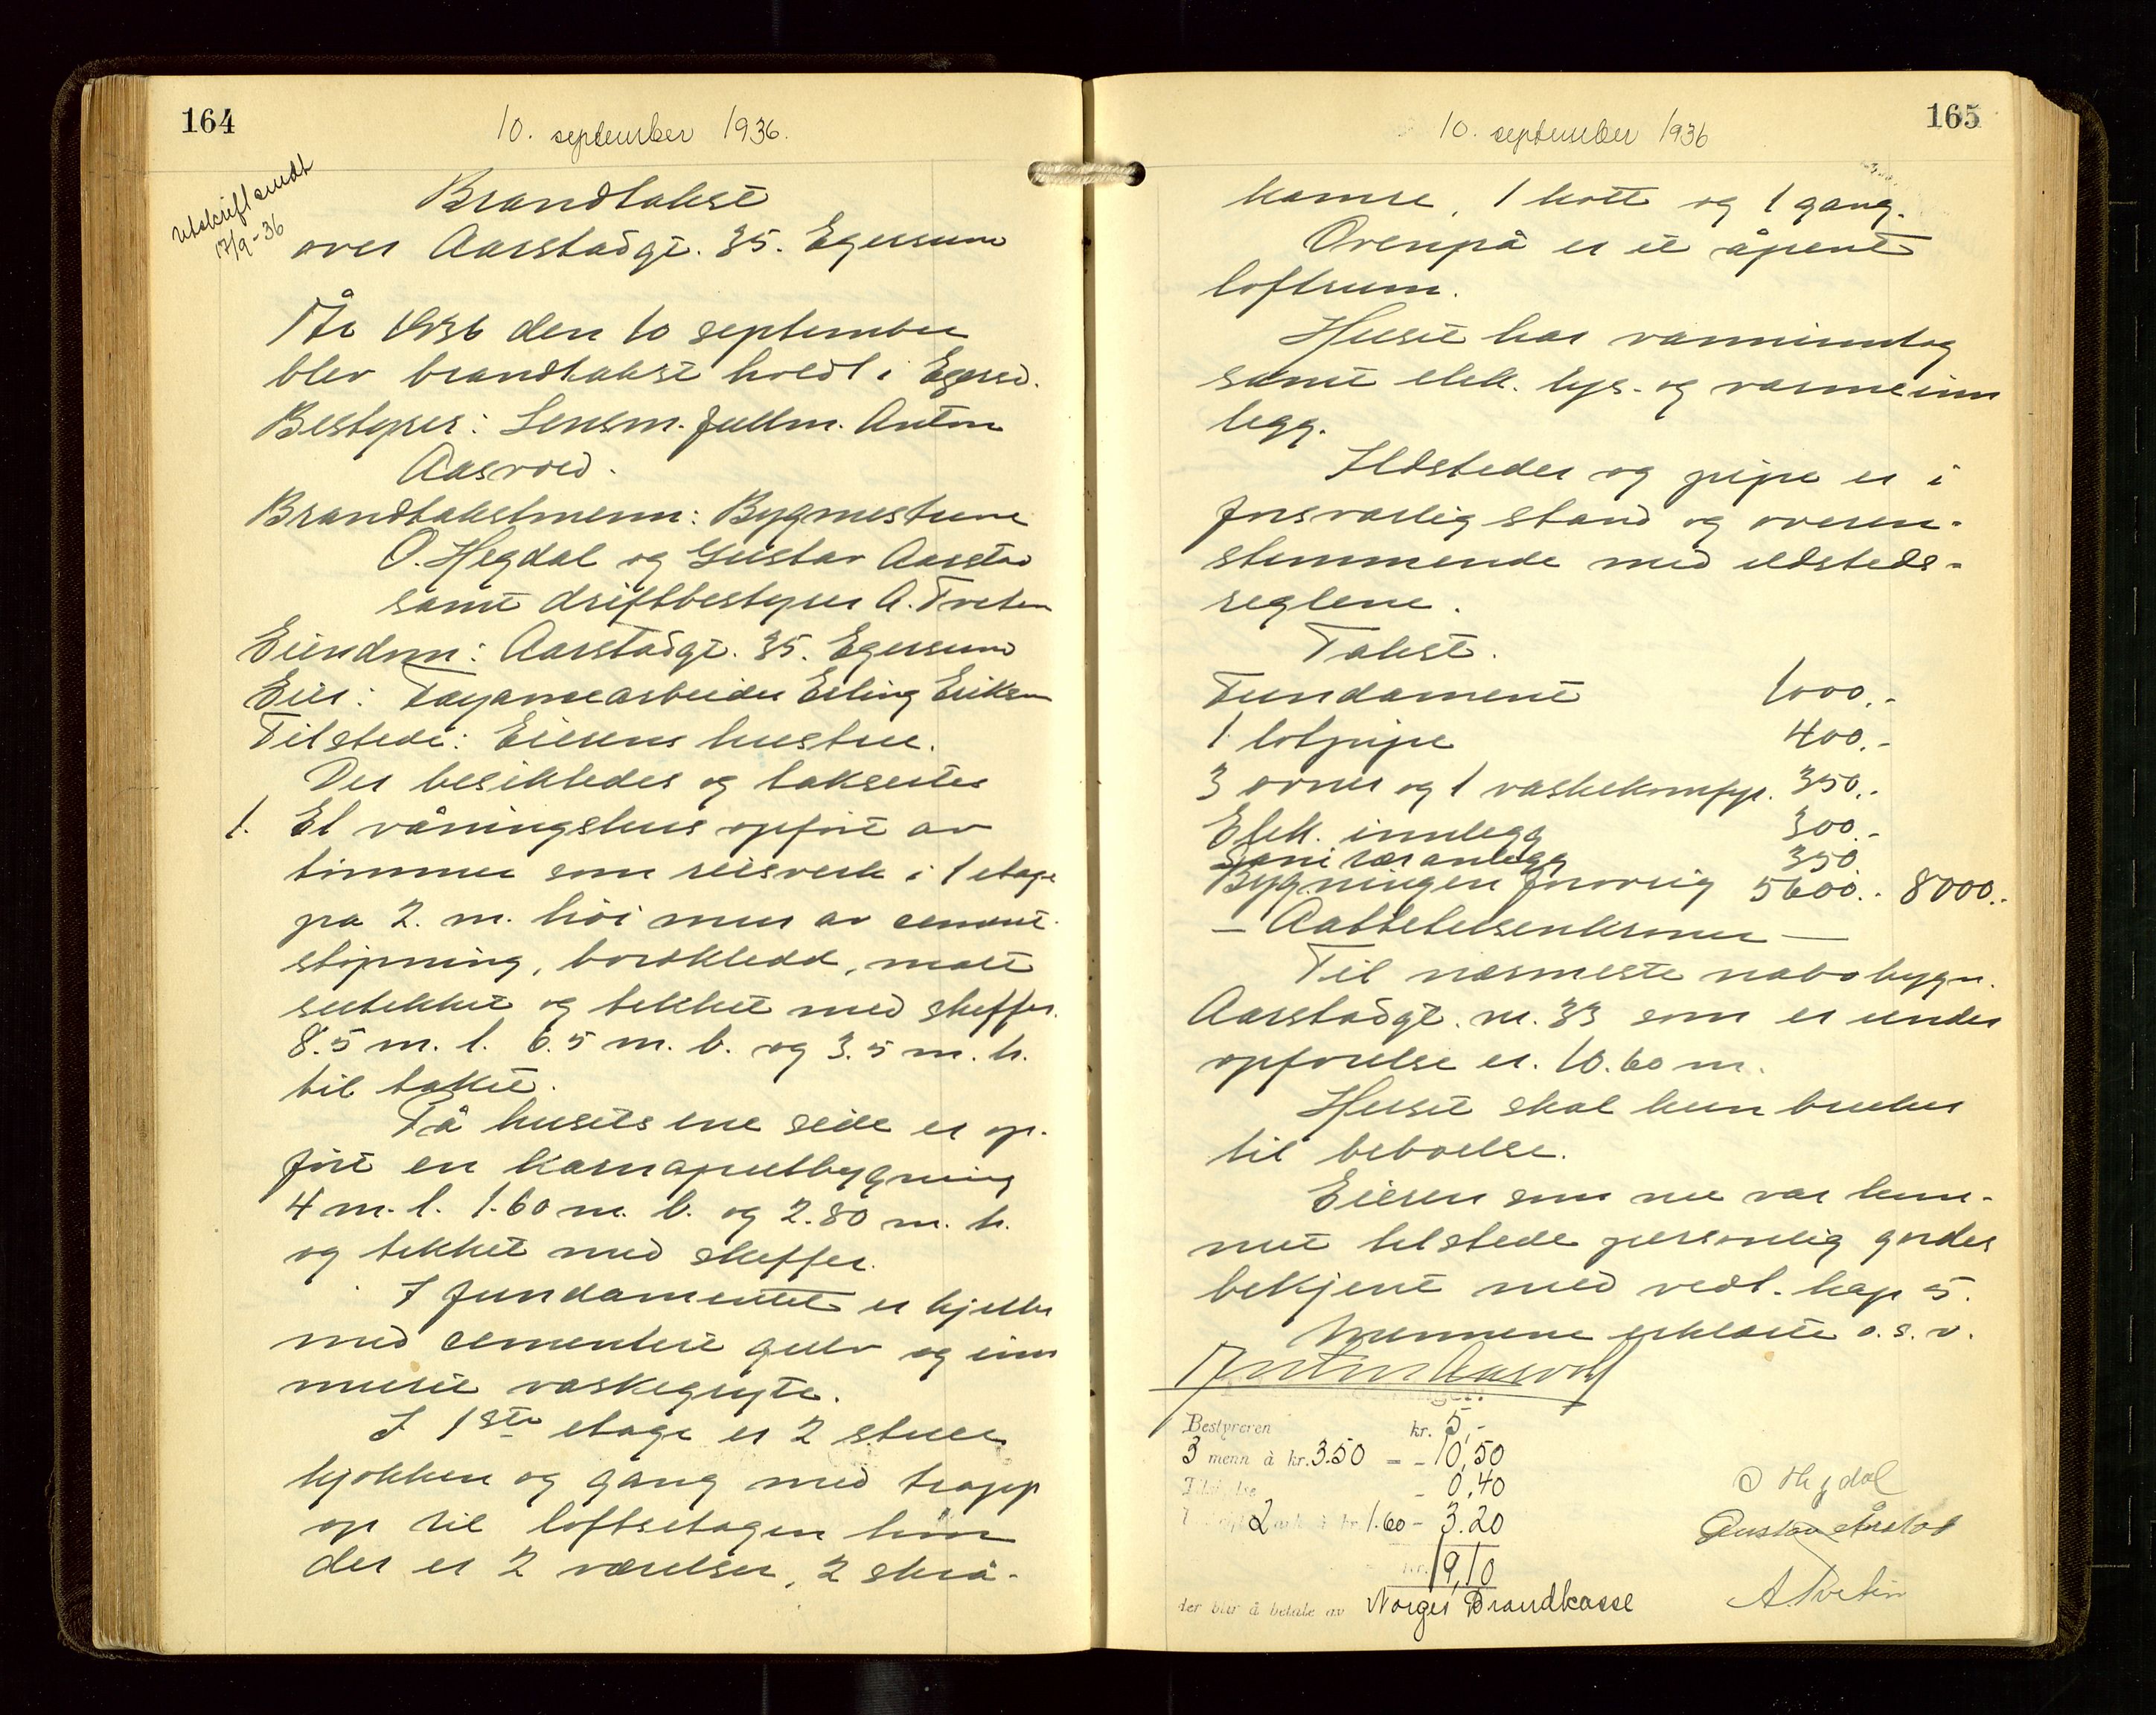 164
10. september 1936.
Utskrift sendt
17/9-36
Brandtakst
over Aarstadgt. 35. Egersund
År 1936 den 10 september
blev brandtakst holdt i Egersd.
Bestyrer: Lensm. fullm. Anton
Aasvold.
Brandtakstmenn: Bygmestrene
O. Hegdal og Gustav Aarstad
samt driftbestyrer A. Tveten
Eiendom: Aarstadgt. 35. Egersund
Eier: Fayancearbeider Erling Eriksen
Tilstede: Eierens hustru.
Der besiktedes og taksertes
1. Et våningshus opført av
tømmer som reisverk i 1 etage
på 2. m. høi mur av cement
støpning, bordkledd, malt
sutekket og tekket med skeffer.
8.5 m. l. 6.5 m. b. og 3.5 m. h.
til taket.
På husets ene side er op-
ført en karnaputbygning
4 m. l. 1.60 m. b. og 2.80 m. h.
og tekket med skeffer.
I fundamentet er kjeller
med cementert gulv og inn
muret vaskegryte.
I 1ste etage er 2 stuer
kjøkken og gang med trapp
op til loftsetagen hvor
der er 2 værelser, 2 skrå-
165
10. september 1936
kamre, 1 kott og 1 gang.
Ovenpå er et åpent
loftrum.
Huset har vanninntag
samt elek. lys- og varmeinn
legg.
Ildsteder og pipe er i
forsvarlig stand og overen-
stemmende med ildsteds-
reglene.
Takst.
Fundament 1000.-
1 løtpipe 400.-
3 ovner og 1 vaskekomfyr. 350.-
Elek. innlegg 300.-
Sanitæranlegg 350
Bygningen forøvrig 5600.- 8000.-
- Aattetusenkroner -
Til nærmeste nabobygn.
Aarstadgt. nr. 33 som er under
opførelse er. 10.60 m.
Huset skal kun brukes
til beboelse.
Eieren som nu var kom-
met tilstede personlig gjordes
bekjent med vedt. kap 5.
Mennene erklærte o. s. v.
Anton Aasvold
Bestyreren kr. 5,-
3 menn à kr. 3.50 = - 10,50
- 0,40
2 ark à kr. 1.60 - 3.20
kr. 19,10
der blir å betale av Norges Brandkasse
O Hegdal
Gustav Årstad
A. Tveten